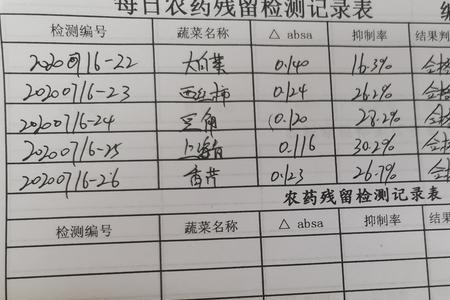 每日农药残留检测记录表
检测编号 蔬菜名称 △ absa 抑制率 结果判
20200716-22 大白菜 0.140 16.3% 合格
20200716-23 西红柿 0.124 26.2% 合格
20200716-24 豆角 0.120 28.2% 合格
20200716-25 上海青 0.116 30.2% 合格
20200716-26 香芹 0.123 26.7% 合格
农药残留检测记录表
检测编号 蔬菜名称 △ absa 抑制率 结果